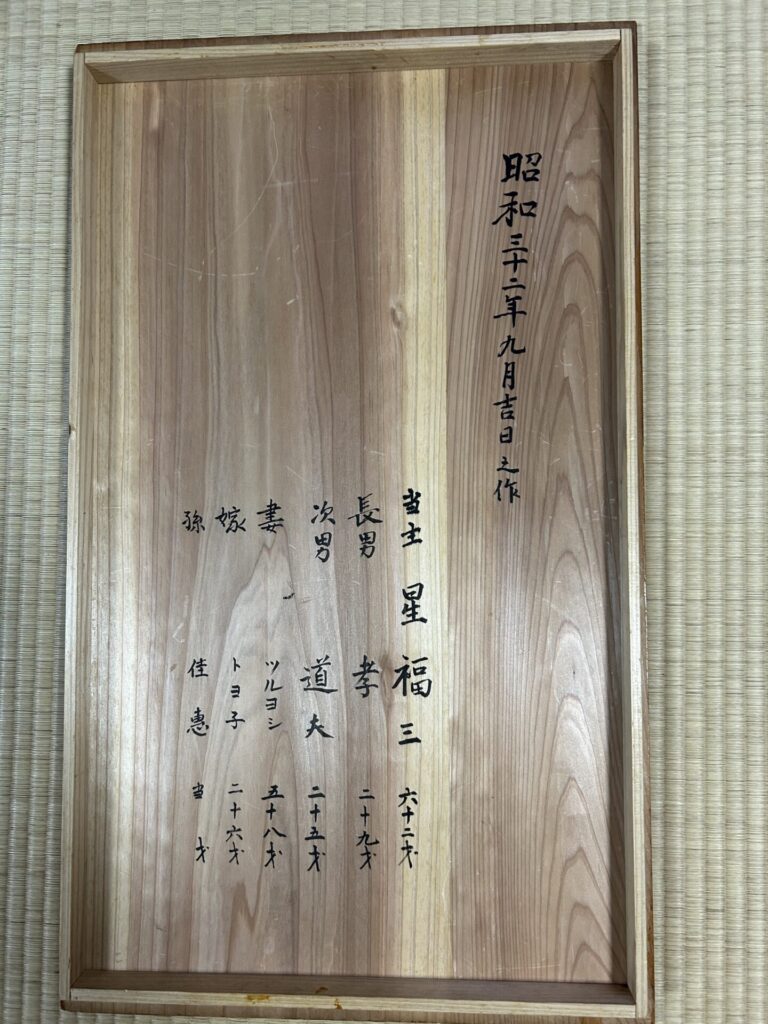 昭和三十二年九月吉日之作
当主 星 福三 六十二才
長男 孝 二十九才
次男 道夫 二十五才
妻 ツルヨシ 五十八才
嫁 トヨ子 二十六才
孫 佳惠 当才